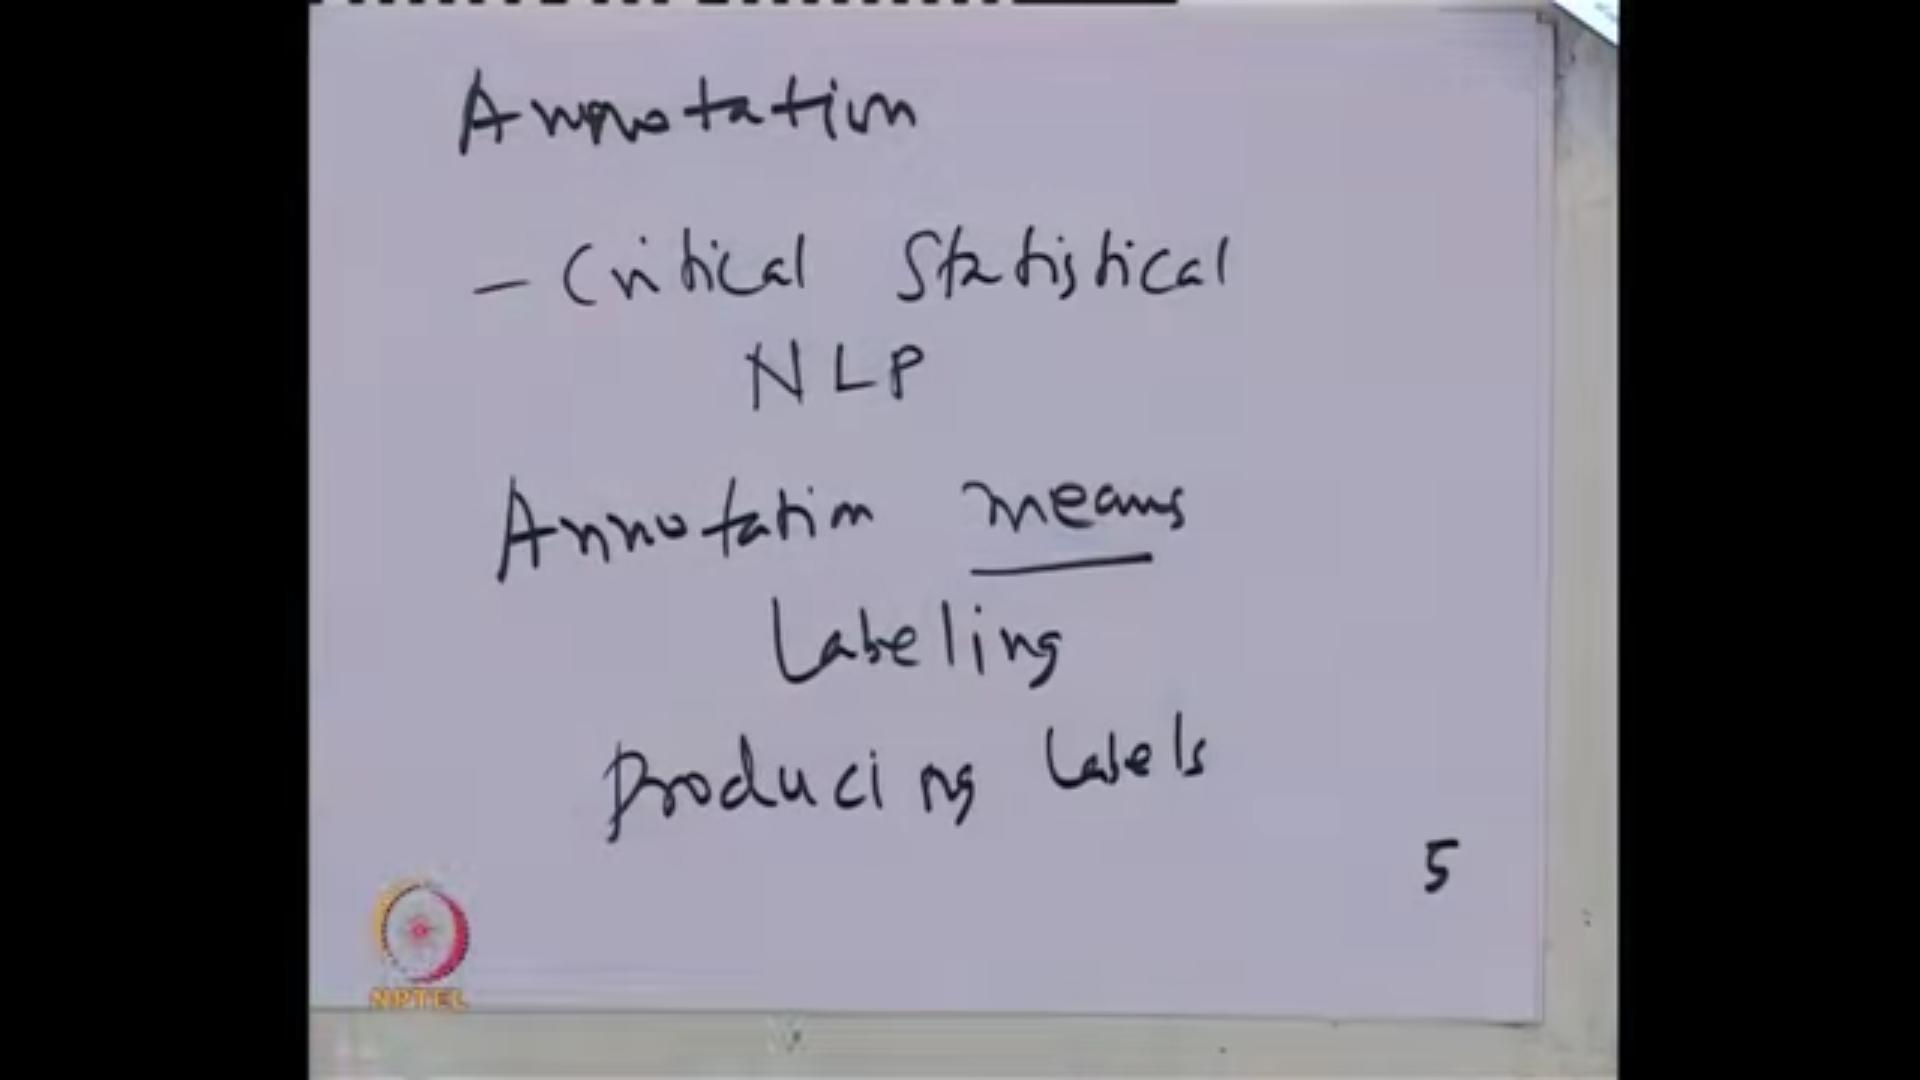 Annotation
- Critical Statistical
NLP
Annotation means
Labeling
Producing Labels
5
NPTEL